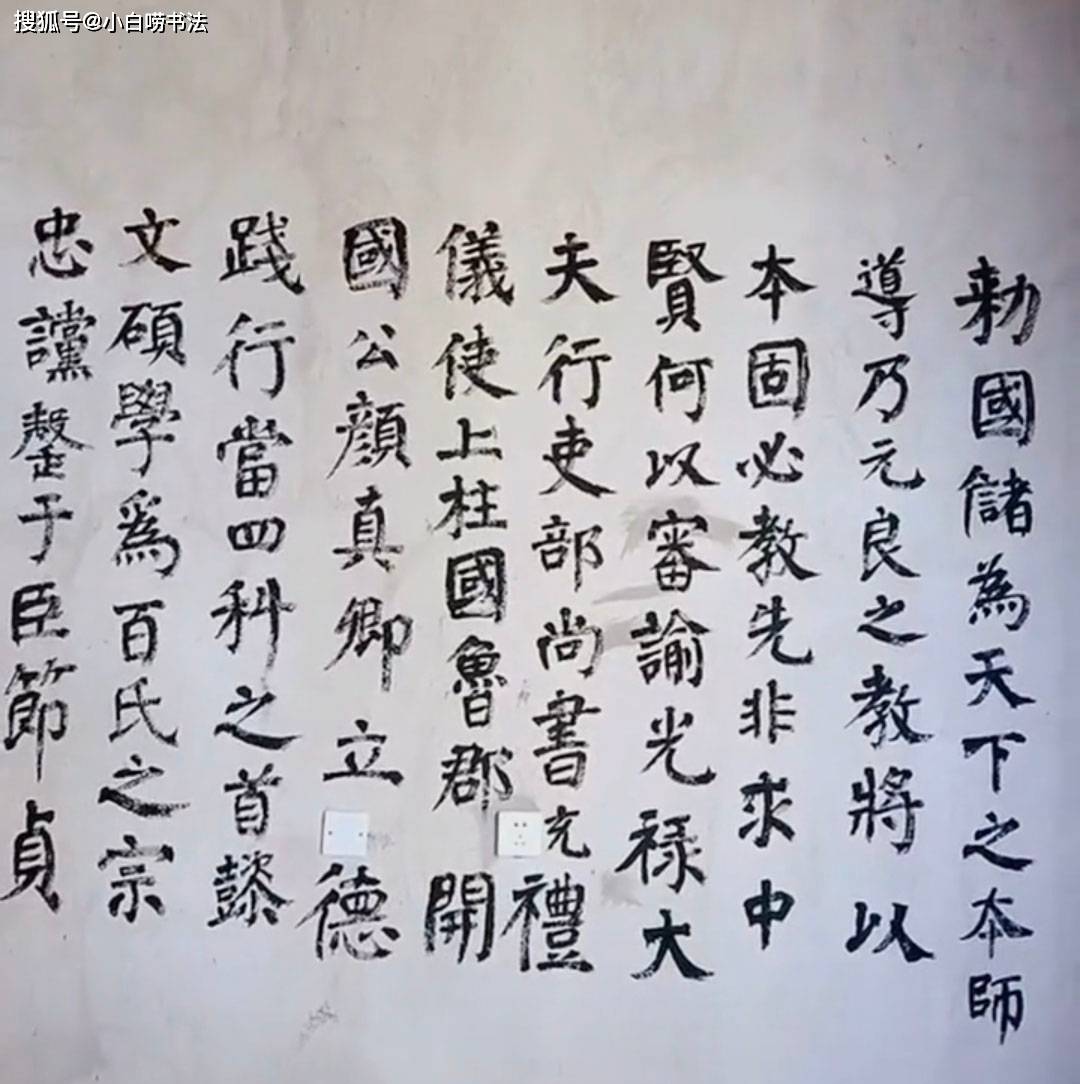 搜狐号@小白唠书法
勅國儲為天下之本師
導乃元良之教將以
本固必教先非求中
賢何以審諭光禄大
夫行吏部尚書充禮
儀使上柱國魯郡開
國公顔真卿立德
践行當四科之首懿
文碩學爲百氏之宗
忠讜罄于臣節貞